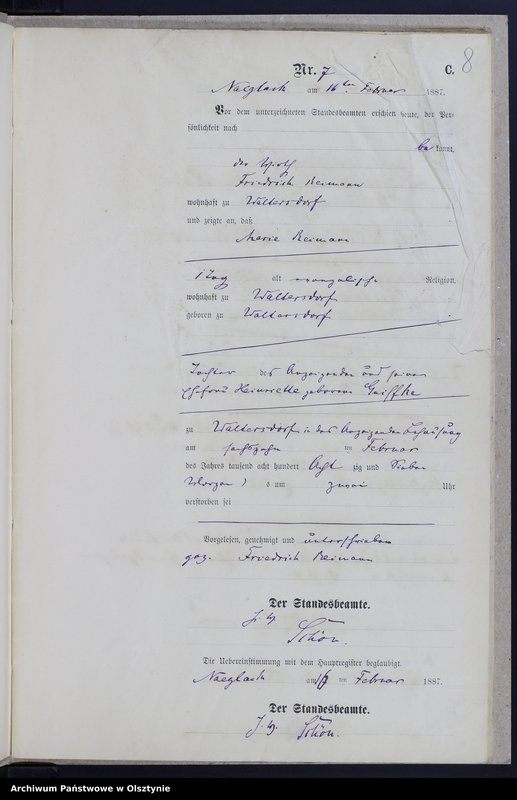 8
Nr. 7 C.
Naeglack am 16ten Februar 1887.
Vor dem unterzeichneten Standesbeamten erschien heute, der Per-
sönlichkeit nach
be kannt,
der Wirth
Friedrich Reimann
wohnhaft zu Waltersdorf
und zeigte an, daß
Marie Reimann
1 Tag alt evangelische Religion,
wohnhaft zu Waltersdorf
geboren zu Waltersdorf
Tochter des Anzeigenden und seiner
Ehefrau Heinriette geborene
zu Waltersdorf in des Anzeigenden Behausung
am sechszehn ten Februar
des Jahres tausend acht hundert Acht zig und Sieben
Morgen s um zwei Uhr
verstorben sei
Vorgelesen, genehmigt und unterschrieben
gez. Friedrich Reimann
Der Standesbeamte.
Schön.
Die Uebereinstimmung mit dem Hauptregister beglaubigt.
Naeglack am ten Februar 1887.
Der Standesbeamte.
Schön.
Archiwum Państwowe w Olsztynie